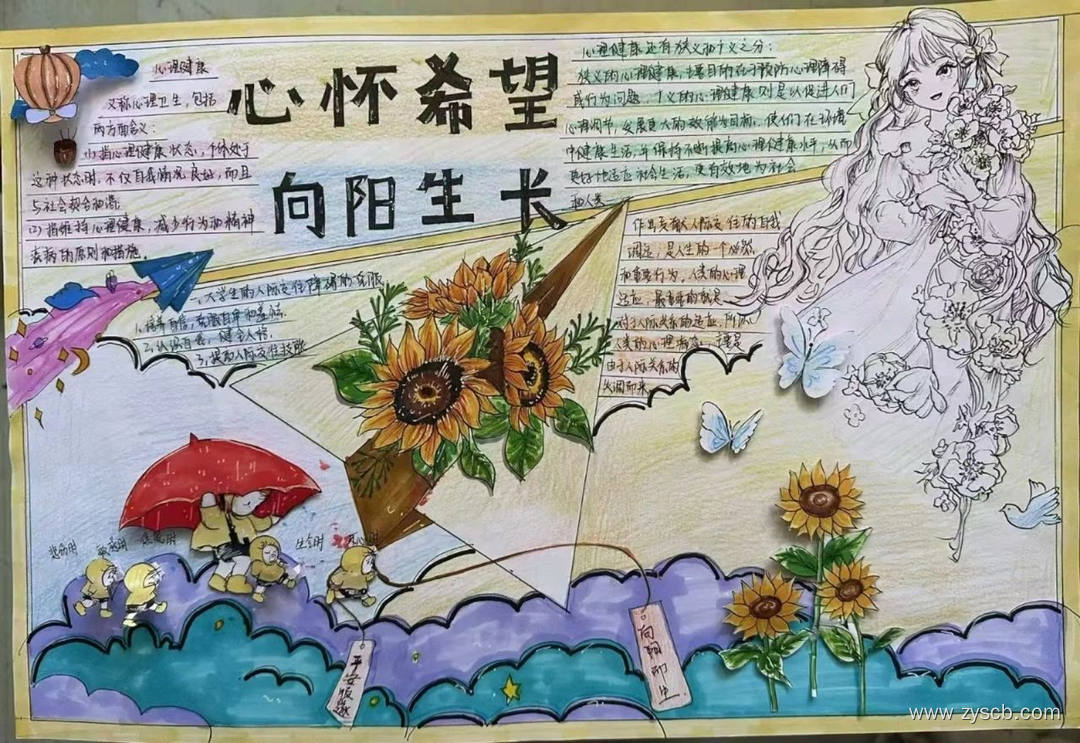 心怀希望
向阳生长
心理健康
又称心理卫生，包括
两方面含义：
(1)指心理健康状态，个体处于
这种状态时，不仅自我情况良好，而且
与社会契合和谐。
(2)指维持心理健康，减少行为和精神
疾病的原则和措施。
心理健康还有狭义和广义之分：
狭义的心理健康，主要目的在于预防心理障碍
或行为问题，广义的心理健康则是以促进人们
心理调节，发展更大的效能为目标，使人们在环境
中健康生活，保持不断提高心理健康水平，从而
更好地适应社会生活，更有效地为社会
和人类
大学生的人际交往障碍的克服
1.培养自信，克服自卑和羞怯
2.认识自我，健全人格
3.提高人际交往技能
作出贡献人际交往的自我
调适：是人生的一个必然
和重要行为，人类的心理
适应，最重要的就是
对于人际关系的适应，所以
人类的心理病态，主要是
由于人际关系的
失调而来
生命时
平安顺遂
向阳而生
www.zyscb.com